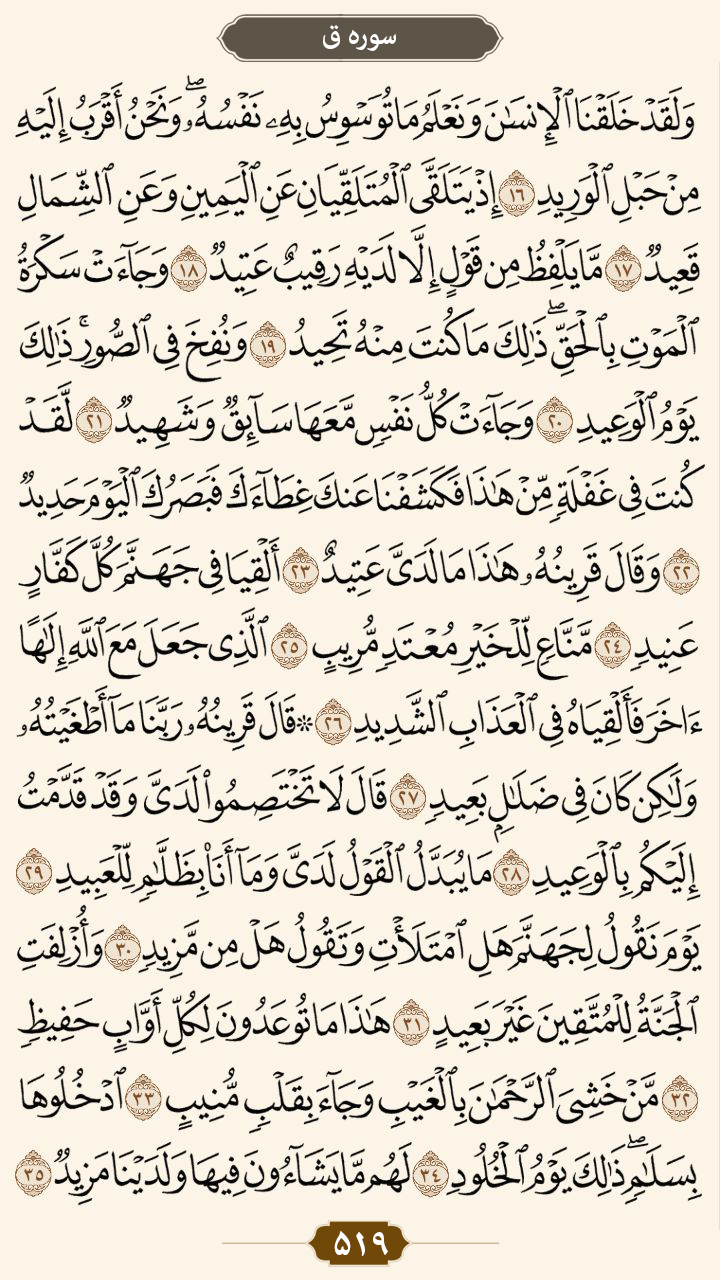 سوره ق
وَلَقَدْ خَلَقْنَا ٱلْإِنسَـٰنَ وَنَعْلَمُ مَا تُوَسْوِسُ بِهِۦ نَفْسُهُۥ ۖ وَنَحْنُ أَقْرَبُ إِلَيْهِ
مِنْ حَبْلِ ٱلْوَرِيدِ ١٦ إِذْ يَتَلَقَّى ٱلْمُتَلَقِّيَانِ عَنِ ٱلْيَمِينِ وَعَنِ ٱلشِّمَالِ
قَعِيدٌ ١٧ مَّا يَلْفِظُ مِن قَوْلٍ إِلَّا لَدَيْهِ رَقِيبٌ عَتِيدٌ ١٨ وَجَآءَتْ سَكْرَةُ
ٱلْمَوْتِ بِٱلْحَقِّ ۖ ذَٰلِكَ مَا كُنتَ مِنْهُ تَحِيدُ ١٩ وَنُفِخَ فِى ٱلصُّورِ ۚ ذَٰلِكَ
يَوْمُ ٱلْوَعِيدِ ٢٠ وَجَآءَتْ كُلُّ نَفْسٍ مَّعَهَا سَآئِقٌ وَشَهِيدٌ ٢١ لَّقَدْ
كُنتَ فِى غَفْلَةٍ مِّنْ هَـٰذَا فَكَشَفْنَا عَنكَ غِطَآءَكَ فَبَصَرُكَ ٱلْيَوْمَ حَدِيدٌ
٢٢ وَقَالَ قَرِينُهُۥ هَـٰذَا مَا لَدَىَّ عَتِيدٌ ٢٣ أَلْقِيَا فِى جَهَنَّمَ كُلَّ كَفَّارٍ
عَنِيدٍ ٢٤ مَّنَّاعٍ لِّلْخَيْرِ مُعْتَدٍ مُّرِيبٍ ٢٥ ٱلَّذِى جَعَلَ مَعَ ٱللَّهِ إِلَـٰهًا
ءَاخَرَ فَأَلْقِيَاهُ فِى ٱلْعَذَابِ ٱلشَّدِيدِ ٢٦ ۞ قَالَ قَرِينُهُۥ رَبَّنَا مَآ أَطْغَيْتُهُۥ
وَلَـٰكِن كَانَ فِى ضَلَـٰلٍۭ بَعِيدٍ ٢٧ قَالَ لَا تَخْتَصِمُوا۟ لَدَىَّ وَقَدْ قَدَّمْتُ
إِلَيْكُم بِٱلْوَعِيدِ ٢٨ مَا يُبَدَّلُ ٱلْقَوْلُ لَدَىَّ وَمَآ أَنَا۠ بِظَلَّـٰمٍ لِّلْعَبِيدِ ٢٩
يَوْمَ نَقُولُ لِجَهَنَّمَ هَلِ ٱمْتَلَأْتِ وَتَقُولُ هَلْ مِن مَّزِيدٍ ٣٠ وَأُزْلِفَتِ
ٱلْجَنَّةُ لِلْمُتَّقِينَ غَيْرَ بَعِيدٍ ٣١ هَـٰذَا مَا تُوعَدُونَ لِكُلِّ أَوَّابٍ حَفِيظٍ
٣٢ مَّنْ خَشِىَ ٱلرَّحْمَـٰنَ بِٱلْغَيْبِ وَجَآءَ بِقَلْبٍ مُّنِيبٍ ٣٣ ٱدْخُلُوهَا
بِسَلَـٰمٍ ۖ ذَٰلِكَ يَوْمُ ٱلْخُلُودِ ٣٤ لَهُم مَّا يَشَآءُونَ فِيهَا وَلَدَيْنَا مَزِيدٌ ٣٥
۵۱۹